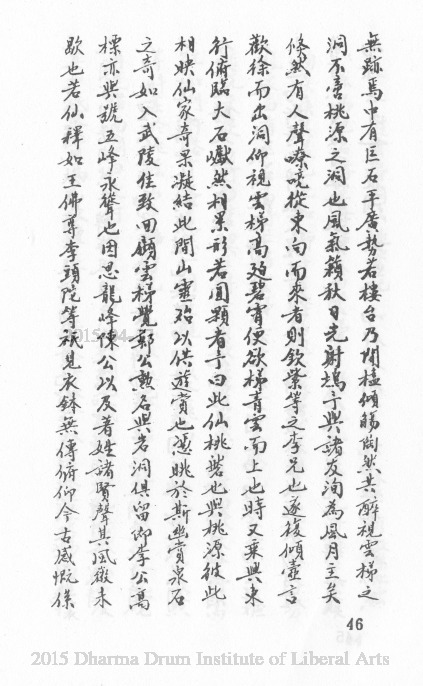 無跡焉中有巨石平廣勢若樓台乃開榼傾觴陶然共醉視雲梯之
洞不啻桃源之洞也風氣籟秋日光射鴆予與諸友洵為風月主矣
倏然有人聲嘹喨從東向而來者則欽縈等之李兄也遂復傾壺言
歡徐而出洞仰視雲梯高廹碧霄便欲梯青雲而上也時又乘興東
行俯臨大石巘然相累形若圓顆者予曰此仙桃礐也與桃源彼此
相映仙家奇果凝結此間山靈殆以供遊賞也憑眺於斯幽賞泉石
之奇如入武陵佳致回顧雲梯覺鄭公勲名與岩洞俱留卹李公高
標亦與號五峰永聳也因思龍峰陳公以及著姓諸賢聲其風徽未
歇也若仙釋如王佛尊李頭陀等祇見衣鉢無傳俯仰今古感慨係
46
2015 Dharma Drum Institute of Liberal Arts